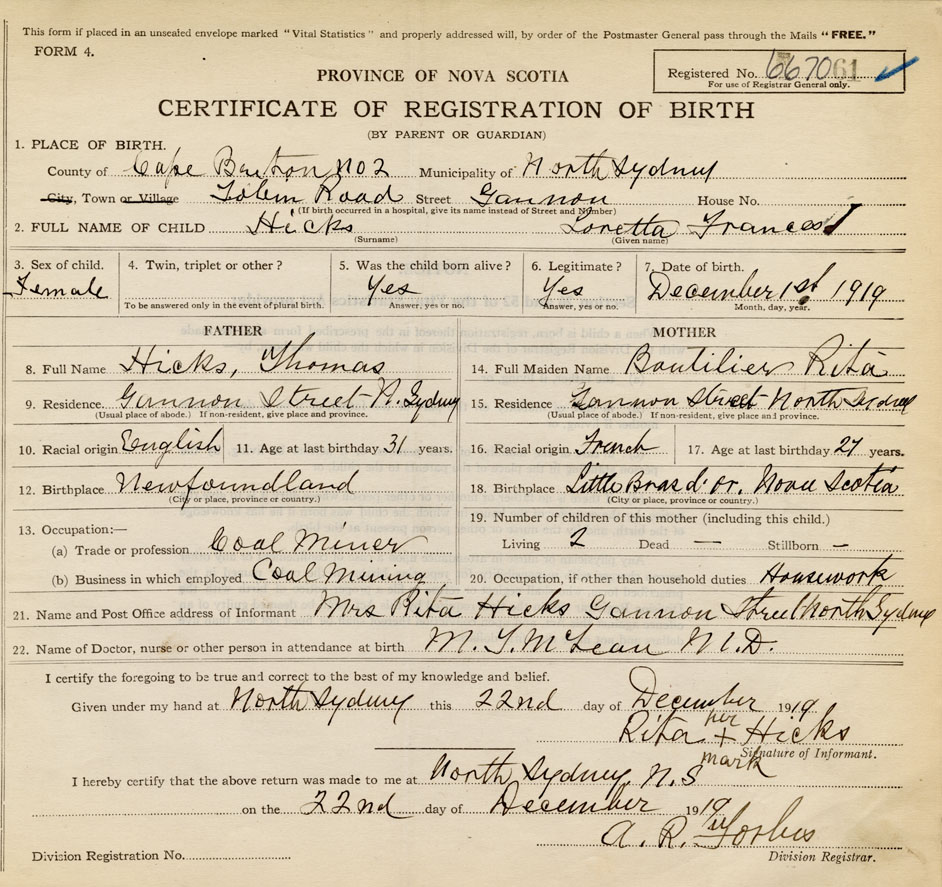 This form if placed in an unsealed envelope marked "Vital Statistics" and properly addressed will, by order of the Postmaster General pass through the Mails "FREE."
FORM 4.
PROVINCE OF NOVA SCOTIA
Registered No. 667061
For use of Registrar General only.
CERTIFICATE OF REGISTRATION OF BIRTH
(BY PARENT OR GUARDIAN)
1. PLACE OF BIRTH.
County of Cape Breton No 2 Municipality of North Sydney
City, Town or Village Tobin Road Street Gannon House No.
(If birth occurred in a hospital, give its name instead of Street and Number)
2. FULL NAME OF CHILD Hicks Loretta Frances
(Surname) (Given name)
3. Sex of child. 4. Twin, triplet or other? 5. Was the child born alive? 6. Legitimate? 7. Date of birth.
Female Yes Yes December 1st, 1919
To be answered only in the event of plural birth. Answer, yes or no. Answer, yes or no. Month, day, year.
FATHER MOTHER
8. Full Name Hicks, Thomas 14. Full Maiden Name Boutilier Rita
9. Residence. Gannon Street N. Sydney 15. Residence Gannon Street North Sydney
(Usual place of abode.) If non-resident, give place and province. (Usual place of abode.) If non-resident, give place and province.
10. Racial origin English 11. Age at last birthday 31 years. 16. Racial origin French 17. Age at last birthday 27 years.
12. Birthplace Newfoundland 18. Birthplace Little Bras d'or. Nova Scotia
(City or place, province or country.) (City or place, province or country.)
13. Occupation:— 19. Number of children of this mother (including this child.)
(a) Trade or profession Coal Miner Living 2 Dead — Stillborn –
(b) Business in which employed Coal Mining 20. Occupation, if other than household duties Housework
21. Name and Post Office address of Informant Mrs Rita Hicks Gannon Street North Sydney
22. Name of Doctor, nurse or other person in attendance at birth M. T. McLean M.D.
I certify the foregoing to be true and correct to the best of my knowledge and belief.
Given under my hand at North Sydney this 22nd day of December 1919
her
Rita + Hicks
mark
Signature of Informant.
I hereby certify that the above return was made to me at North Sydney, N.S
on the 22nd day of December 1919
A. R. Forbes
Division Registration No. Division Registrar.